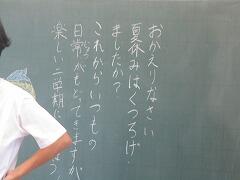 おかえりなさい
夏休みはくつろげ
ましたか?
これからいつもの
日常がもどってきますが
楽しい二学期に